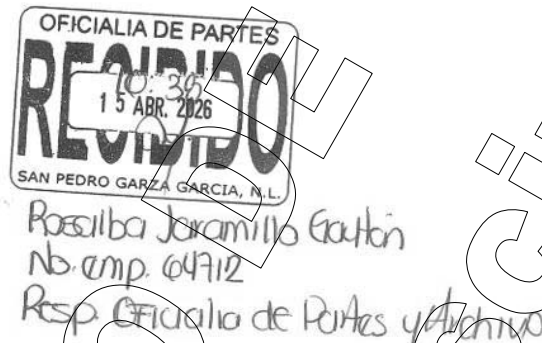 OFICIALIA DE PARTES
RECIBIDO
10:35
15 ABR. 2026
SAN PEDRO GARZA GARCIA, N.L.
Rosalba Jaramillo Gaytán
No. emp. 64712
Resp. Oficialia de Partes y Archivo